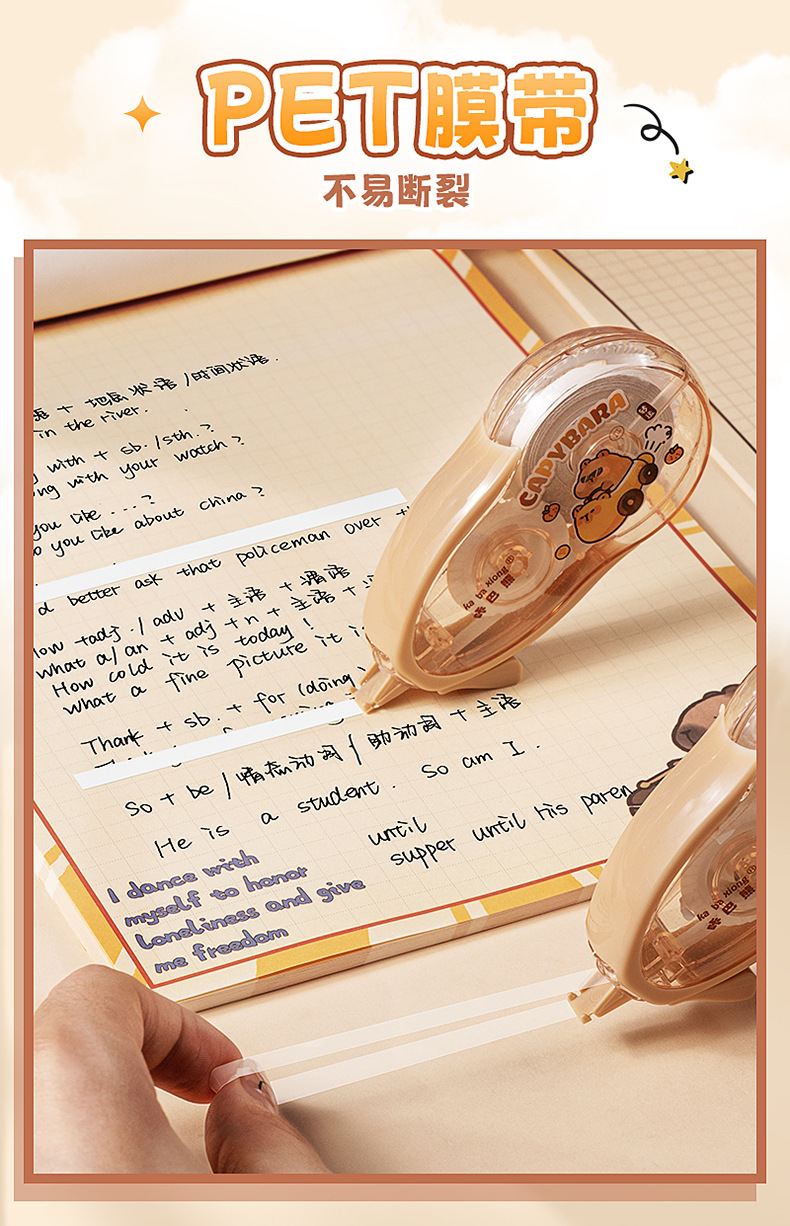 PET膜带
不易断裂
语 + 地点状语 / 时间状语.
in the river.
with + sb. / sth.?
ng with your watch?
you like ...?
o you like about China?
d better ask that policeman over
How + adj. / adv + 主语 + 谓语
what a/an + adj + n + 主语 +
How cold it is today!
what a fine picture it i
Thank + sb. + for (doing)
So + be / 情态动词 / 助动词 + 主语
He is a student. So am I.
until
supper until his paren
I dance with
myself to honor
loneliness and give
me freedom
CAPYBARA
ka ba xiong
咔巴熊
ka ba xiong
咔巴熊